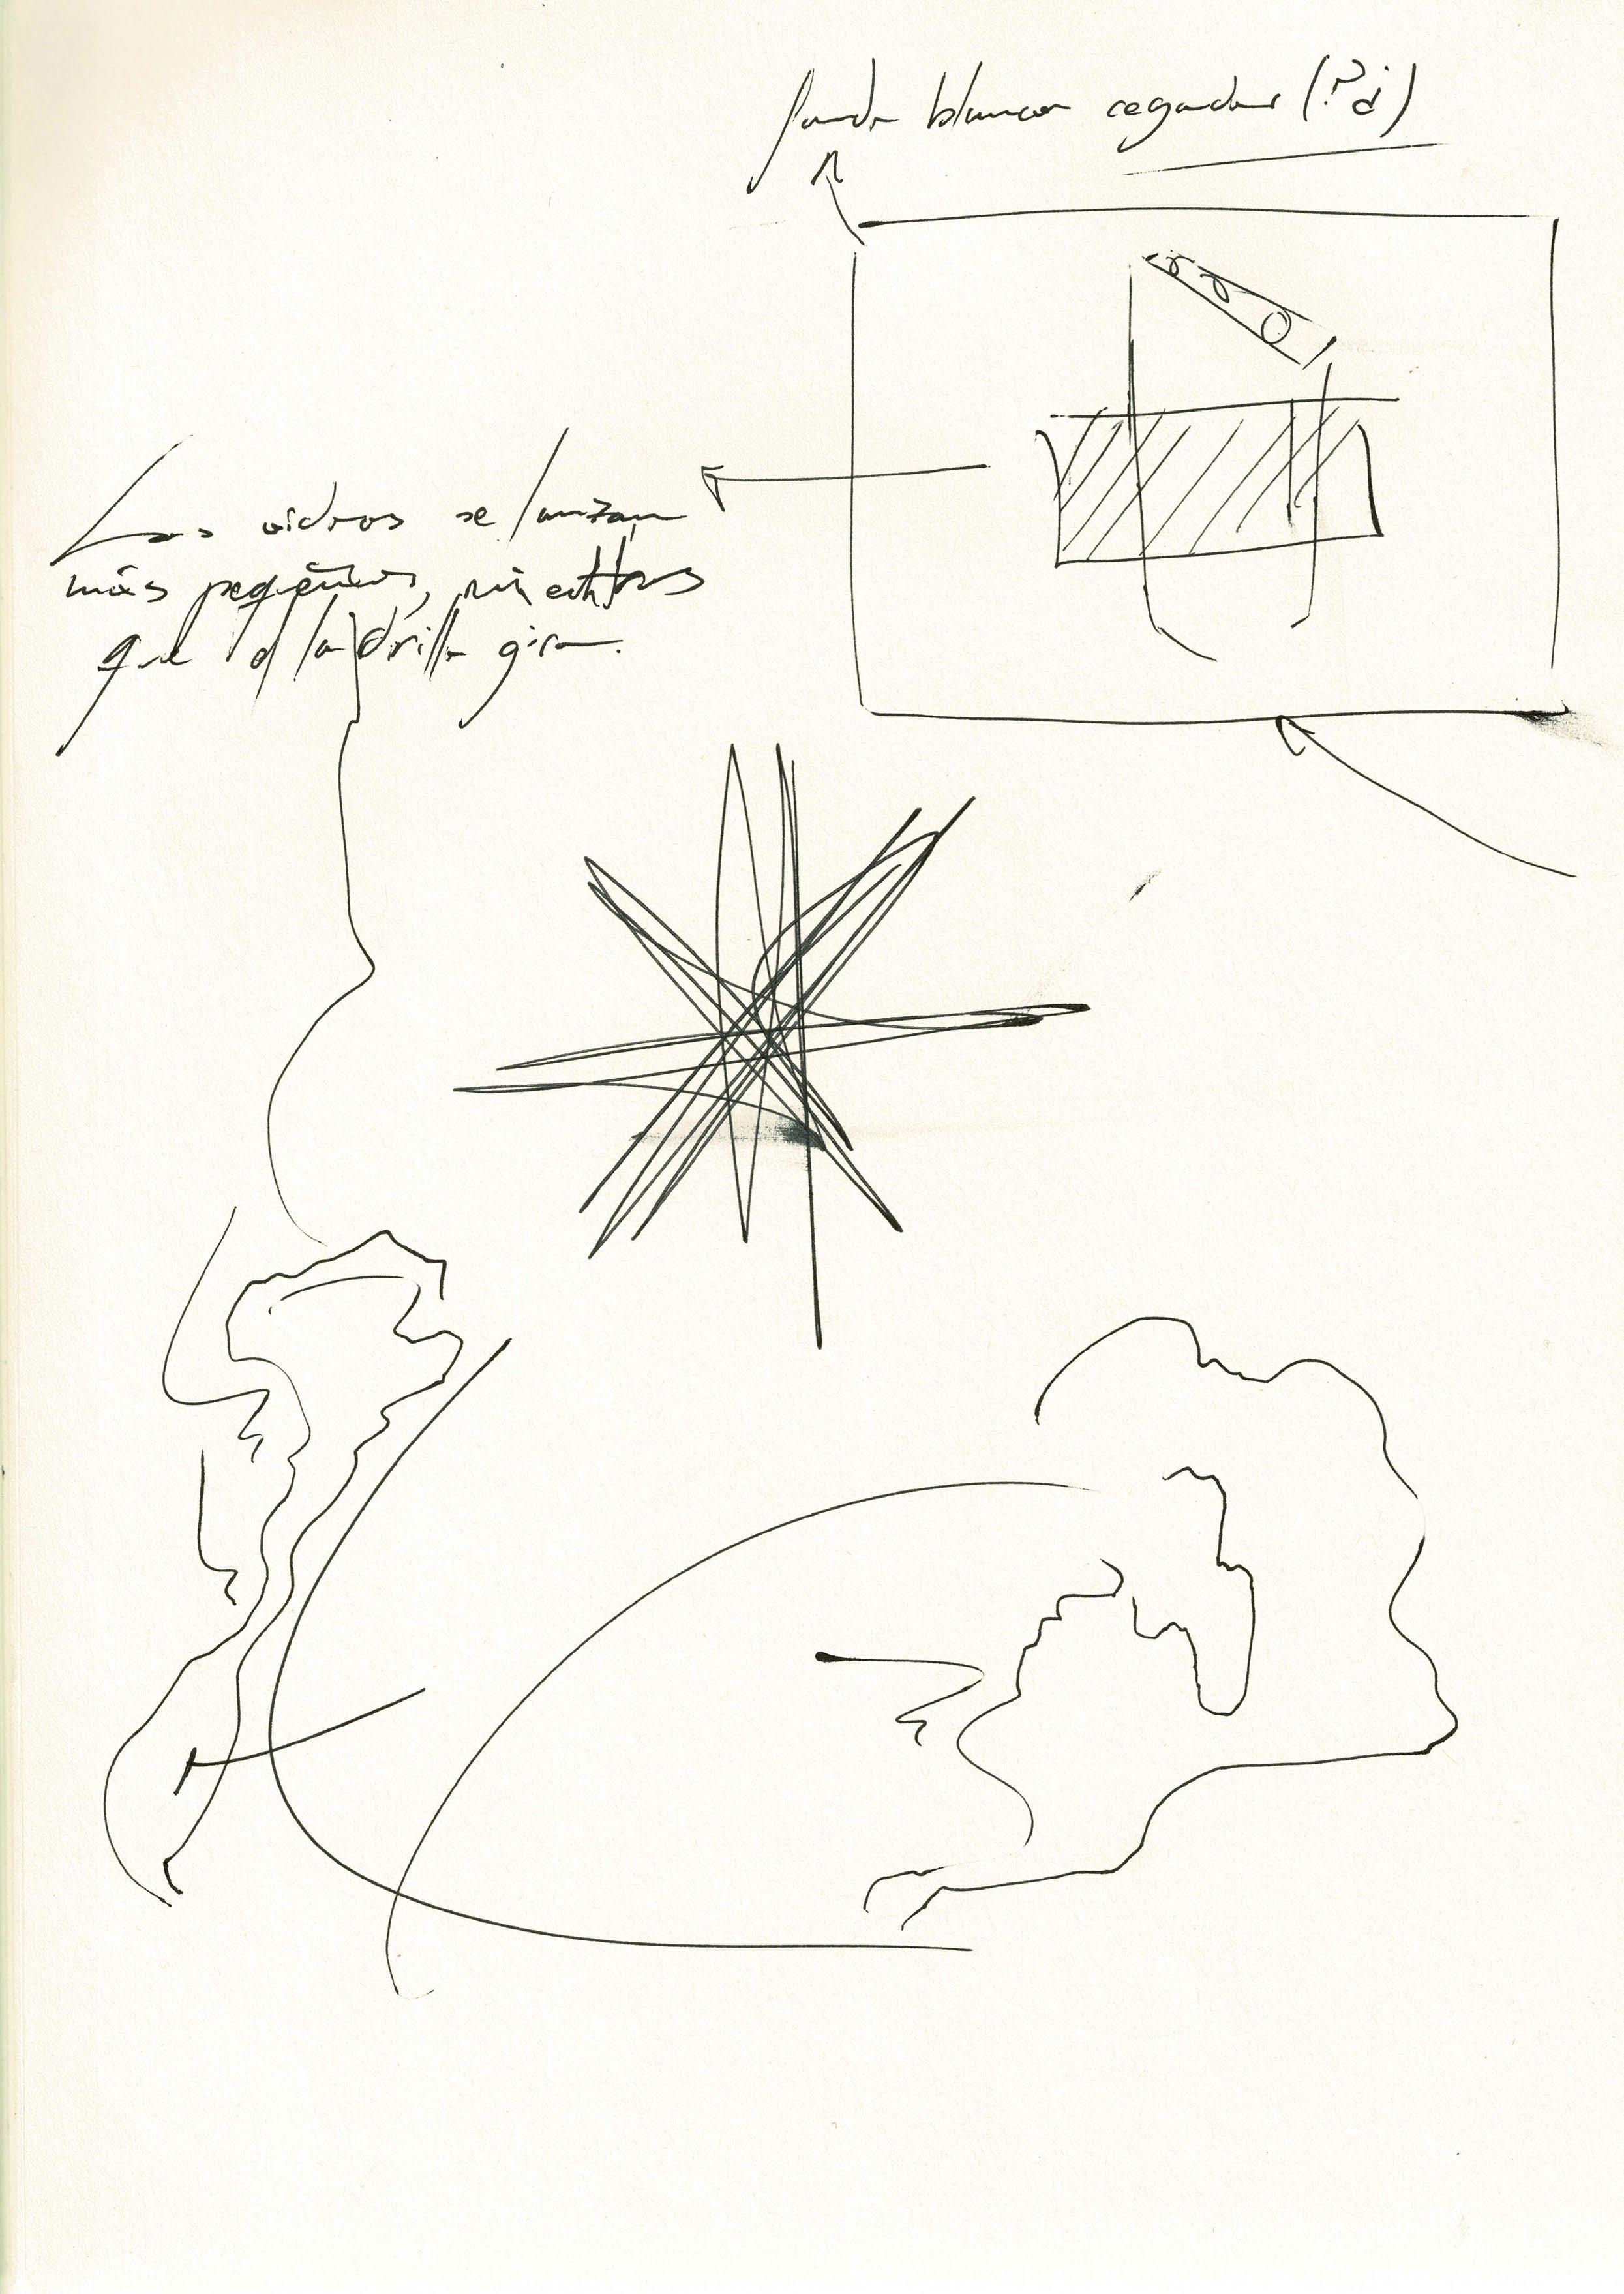 fondo blanco cegador (?¿)
Los vidros se lanzan
más pequeños, mientras
que el ladrillo gira.